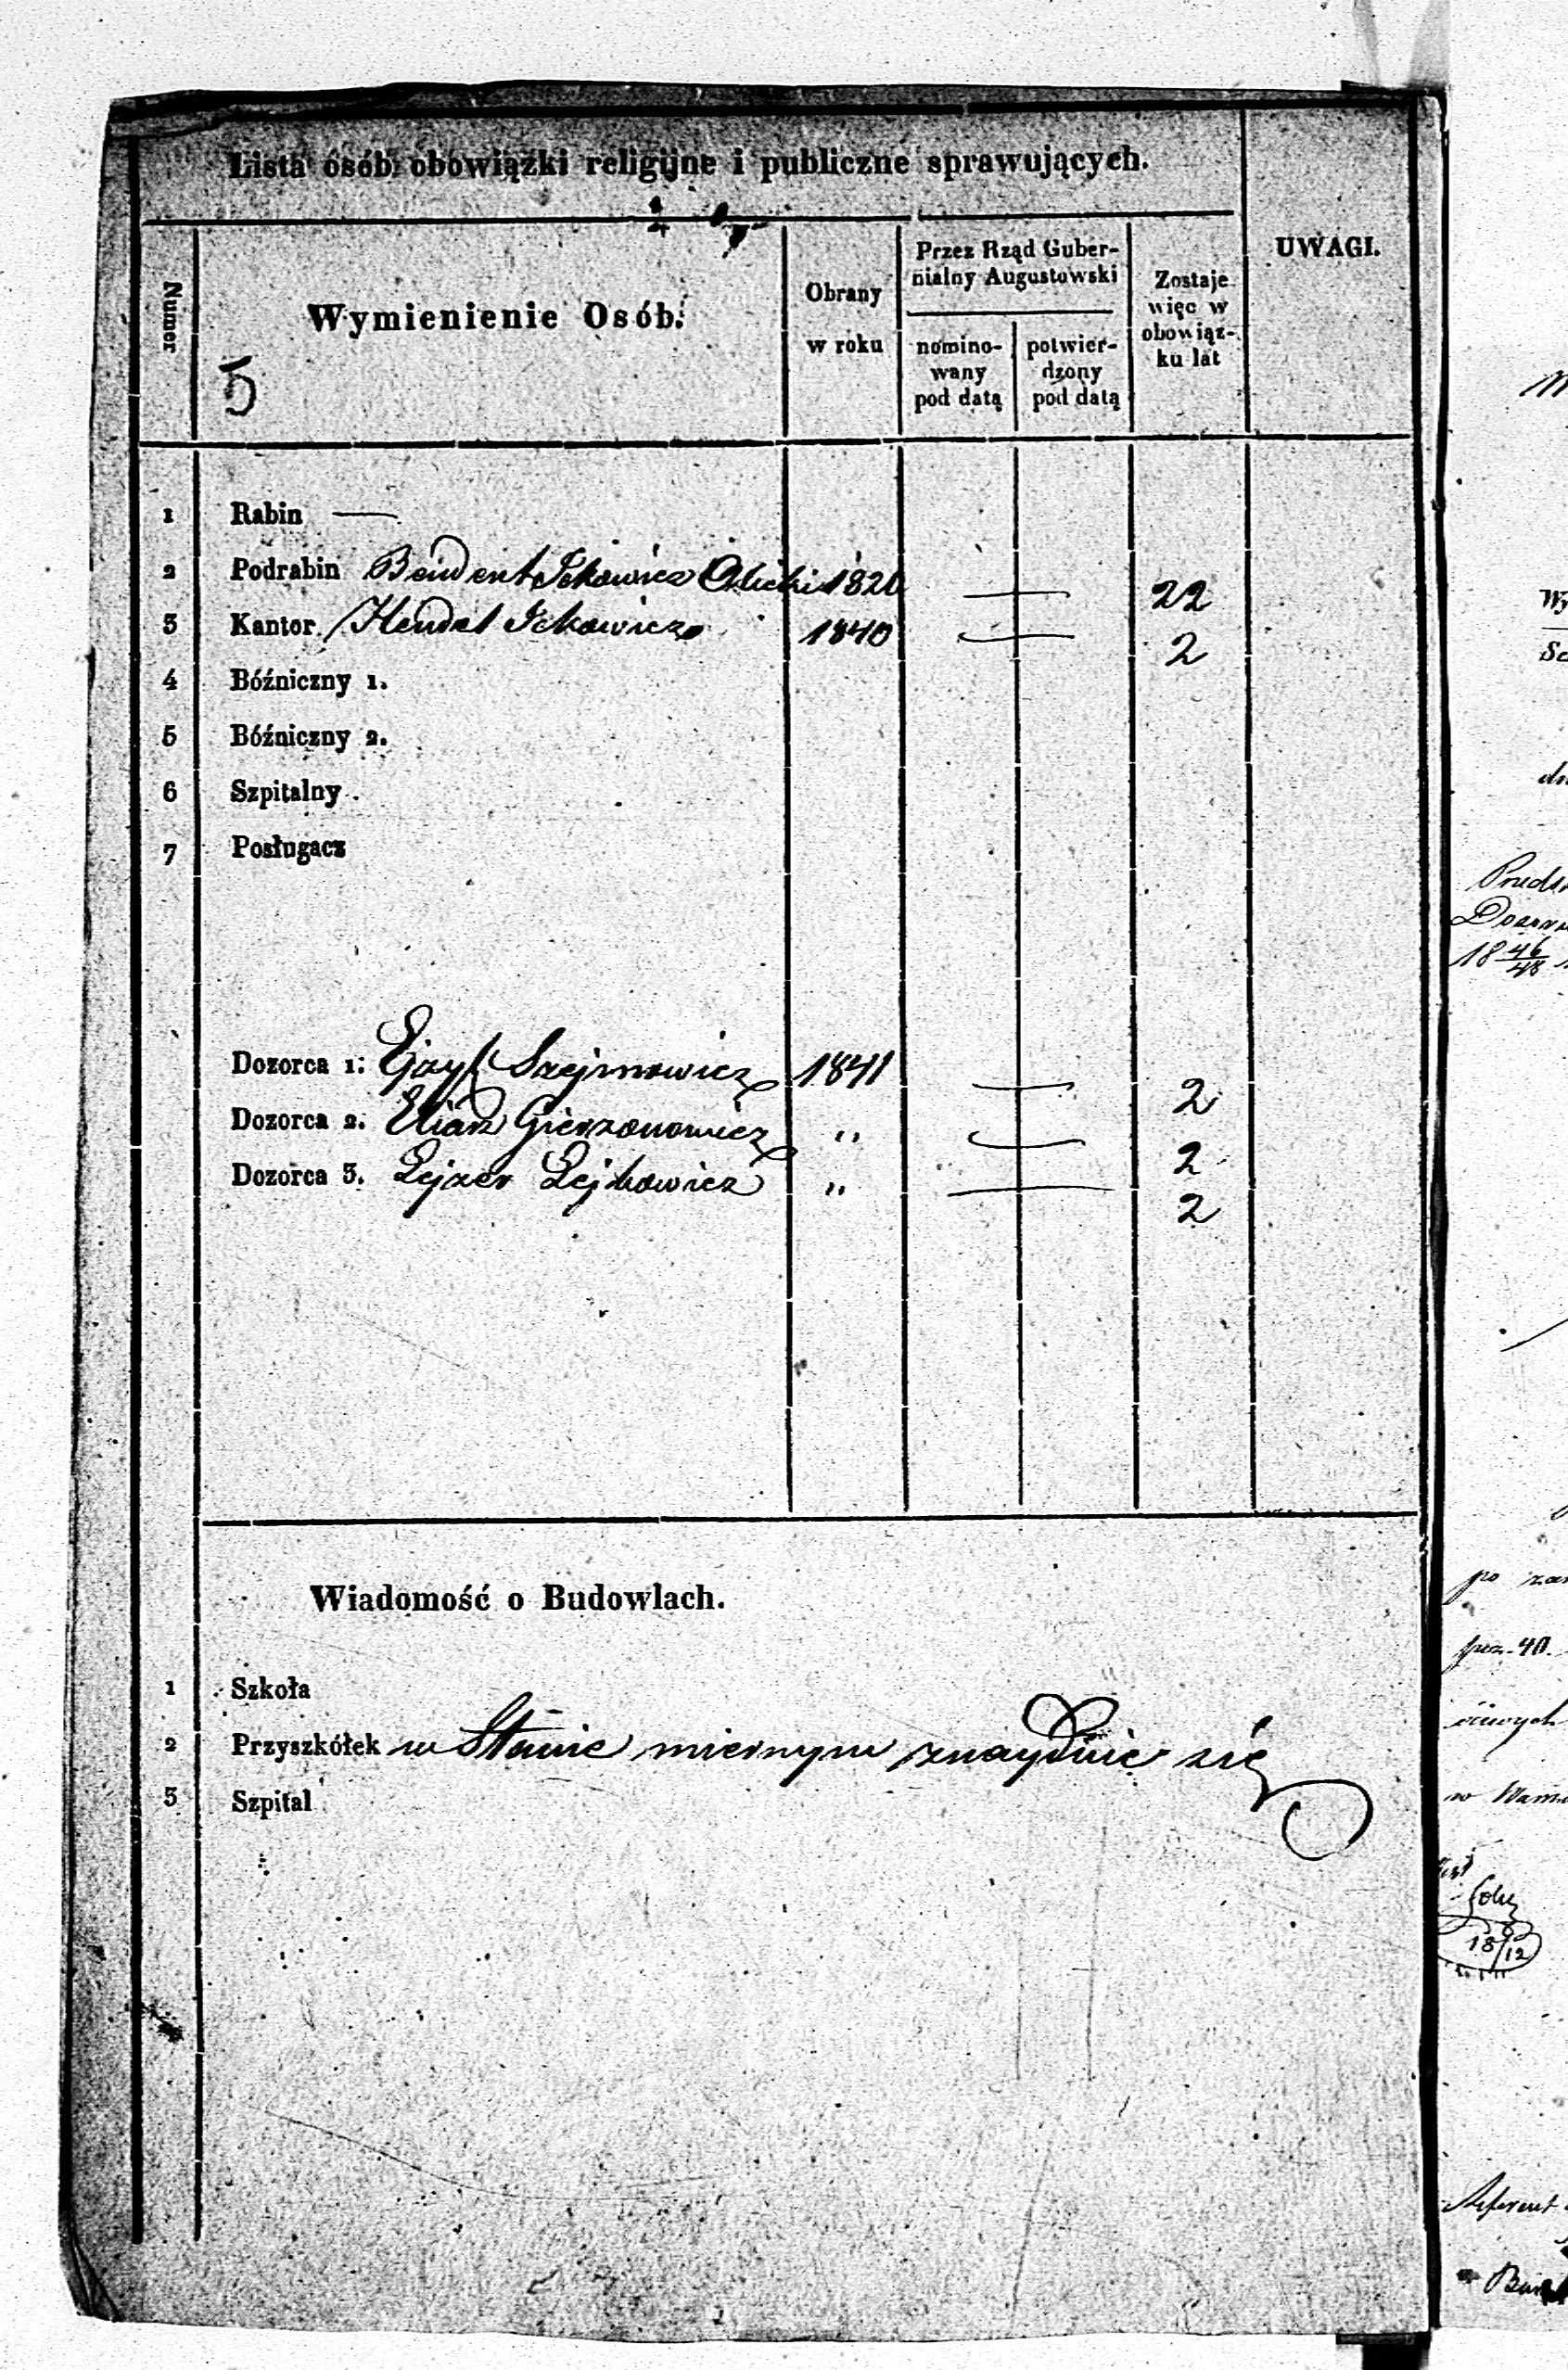 Lista osób obowiązki religijne i publiczne sprawujących.
UWAGI.
Numer
Wymienienie Osób.
5
Obrany w roku
Przez Rząd Gubernialny Augustowski
nominowany pod datą
potwierdzony pod datą
Zostaje więc w obowiązku lat
1 Rabin —
2 Podrabin Ickowicz 182 — 22
3 Kantor Hendel Ickowicz 1840 — 2
4 Bóźniczny 1.
5 Bóźniczny 2.
6 Szpitalny
7 Posługacz
Dozorca 1. Szejmowicz 1841 — 2
Dozorca 2. Eliasz Gierszonowicz " — 2
Dozorca 3. Lejzer Lejbowicz " — 2
Wiadomość o Budowlach.
1 Szkoła
2 Przyszkółek w Stanie miernym znayduie się
3 Szpital
18 46/48
po
40.
w
18/12
Referent